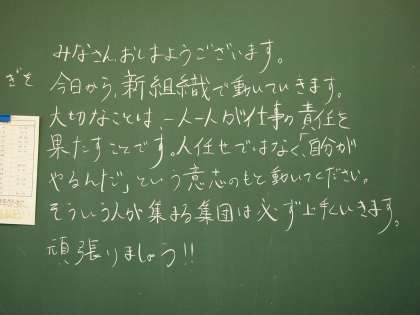 みなさん、おはようございます。
ぎを
今日から、新組織で動いていきます。
大切なことは一人一人が仕事の責任を
果たすことです。人任せではなく、「自分が
やるんだ」という意志のもと動いてください。
そういう人が集まる集団は必ず上手くいきます。
頑張りましょう!!